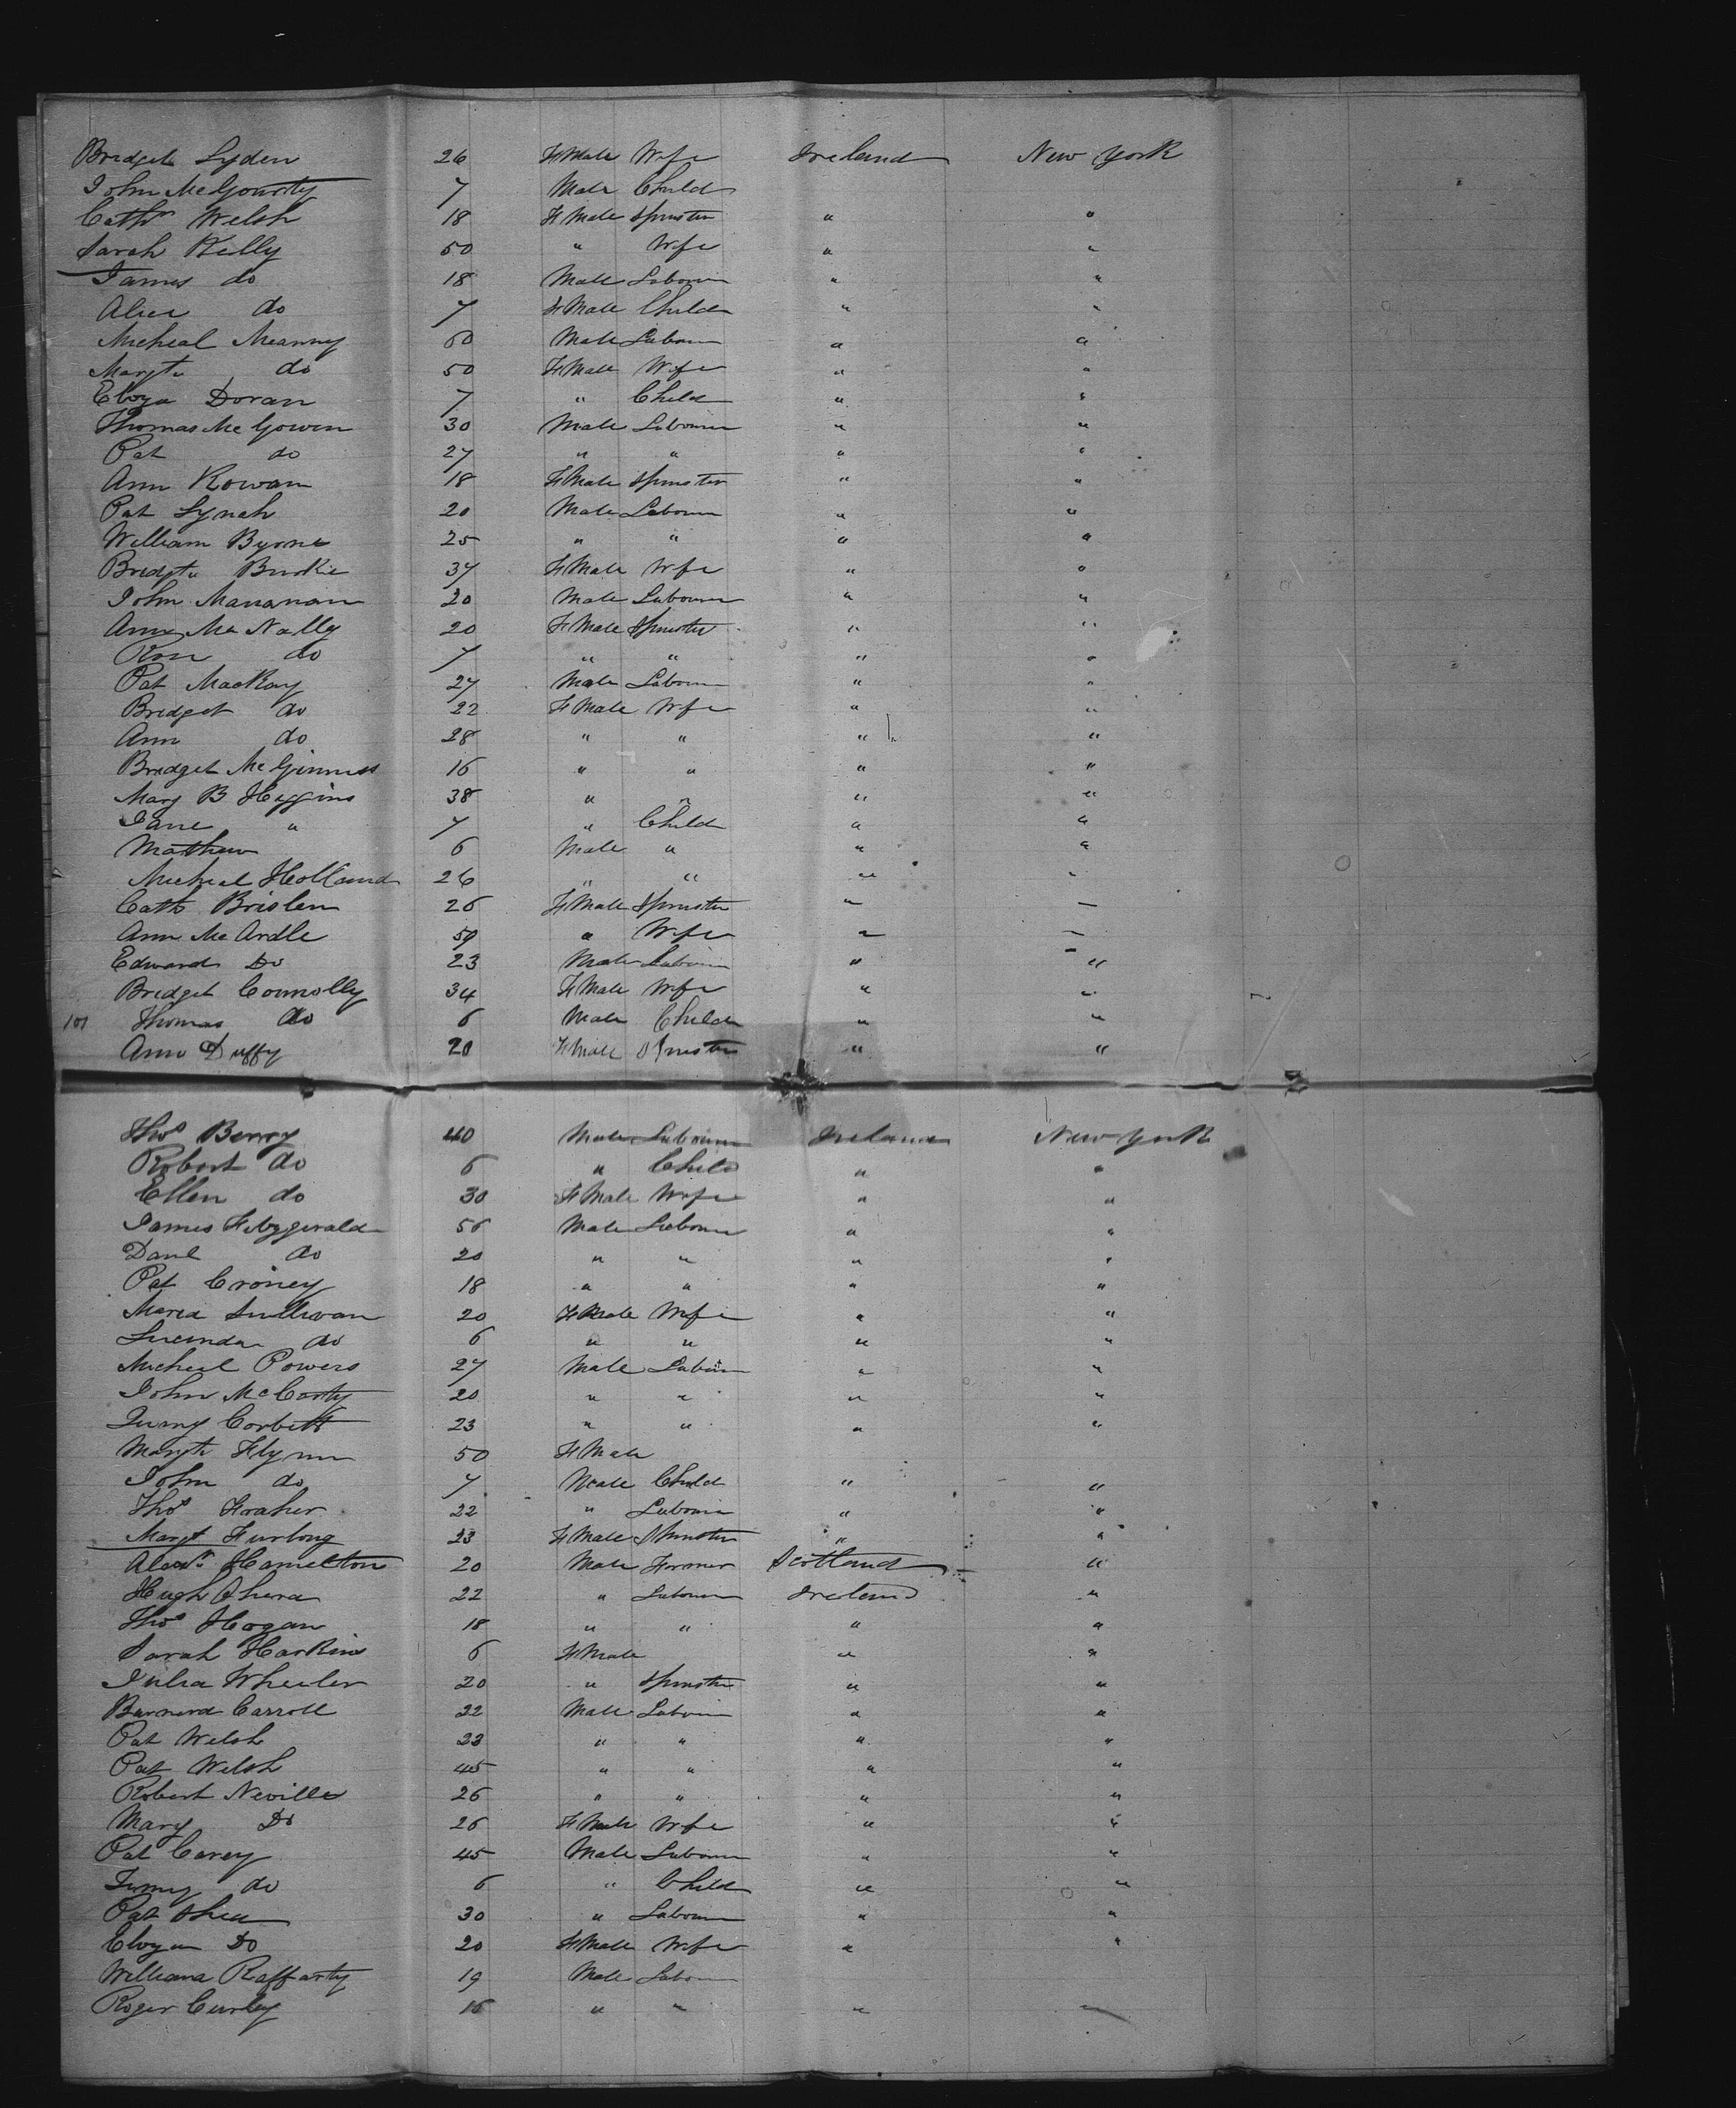 Bridget Lyden 26 F Male Wife Ireland New York
John McGourty 7 Male Child
Cathn Welsh 18 F Male Spinster " "
Sarah Kelly 50 " Wife " "
James do 18 Male Labourer " "
Alice do 7 F Male Child " "
Micheal Meanny 60 Male Labourer " "
Margt do 50 F Male Wife " "
Eliza Doran 7 " Child " "
Thomas McGowen 30 Male Labourer " "
Pat do 27 " " " "
Ann Rowan 18 F Male Spinster " "
Pat Lynch 20 Male Labourer " "
William Byrne 25 " " " "
Bridgt Burke 37 F Male Wife " "
John Manaran 20 Male Labourer " "
Ann McNally 20 F Male Spinster " "
Rose do 7 " " " "
Pat MacKay 27 Male Labourer " "
Bridget do 22 F Male Wife " "
Ann do 28 " " " "
Bridget McGinniss 16 " " " "
Mary B Higgins 38 " " " "
Jane " 7 " Child " "
Mathew 6 Male " " "
Micheal Holland 26 " " " "
Cath Brislen 26 F Male Spinster " "
Ann McArdle 59 " Wife " "
Edward Do 23 Male Labourer " "
Bridget Connolly 34 F Male Wife " "
101 Thomas do 6 Male Child " "
Ann Duffy 20 F Male Spinster " "
Thos Berry 40 Male Labourer Ireland New York
Robert do 6 " Child " "
Ellen do 30 F Male Wife " "
James Fitzgerald 56 Male Labourer " "
Danl do 20 " " " "
Pat Croney 18 " " " "
Maria Sullivan 20 F Male Wife " "
Lucinda do 6 " " " "
Micheal Powers 27 Male Labour " "
John McCarty 20 " " " "
Jimmy Corbett 23 " " " "
Margt Flynn 50 F Male
John do 7 Male Child " "
Thos Fraher 22 " Labourer " "
Margt Furlong 23 F Male Spinster " "
Alexr Hamelton 20 Male Farmer Scotland "
Hugh Ohera 22 " Labourer Ireland "
Thos Hogan 18 " " " "
Sarah Harkins 6 F Male " "
Julia Wheeler 20 " Spinster " "
Barnard Carroll 22 Male Labourer " "
Pat Welsh 23 " " " "
Pat Welsh 45 " " " "
Robert Neville 26 " " " "
Mary Do 26 F Male Wife " "
Pat Carey 45 Male Labourer " "
Jimmy do 6 " Child " "
Pat Shea 30 " Labourer " "
Eliza Do 20 F Male Wife " "
William Raffarty 19 Male Labourer
Roger Curley 16 " " " "